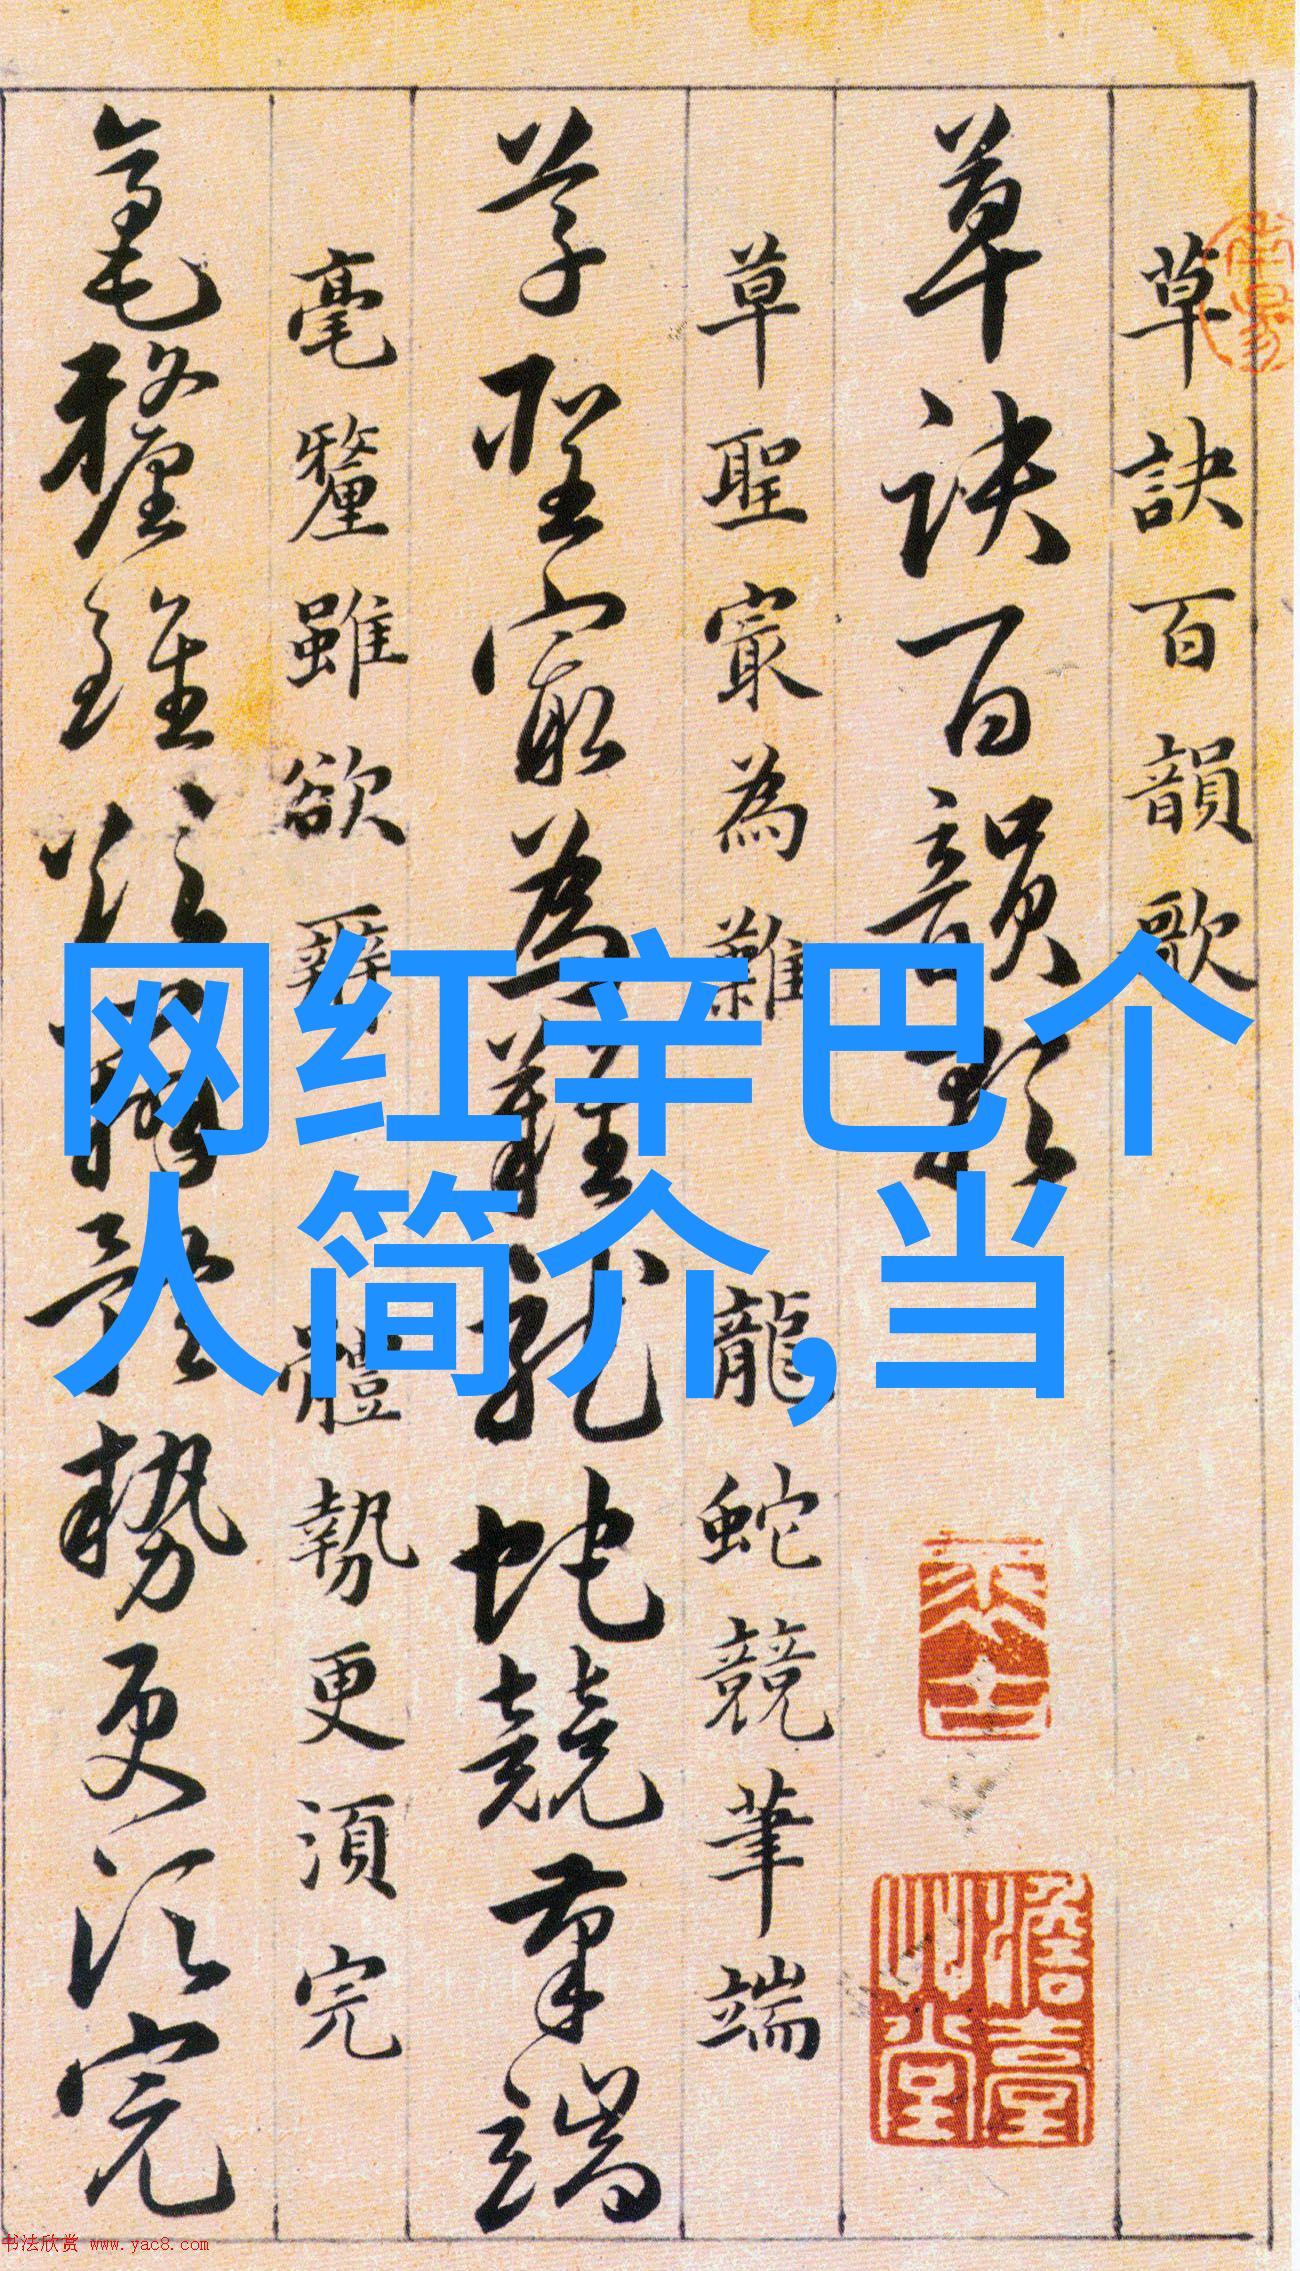 草訣百韻歌
草訣百韻歌
草聖寂為難 龍蛇競筆端
草聖寂為難龍蛇競筆端
毫釐雖欲辨 體勢更須完
毫釐雖欲辨體勢更須完
网红辛巴个
人简介,当
澹臺
书法欣赏 www.yac8.com